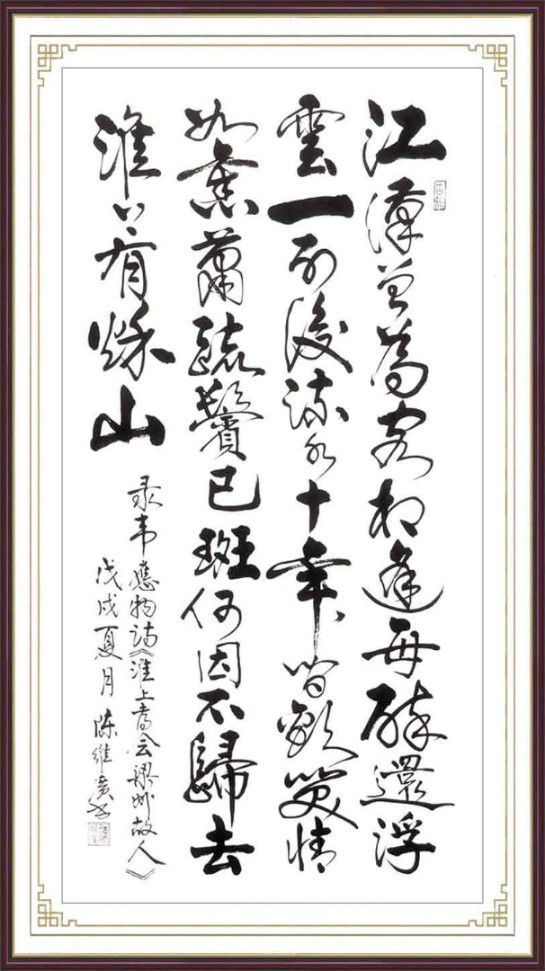 江漢曾為客相逢每醉還浮
雲一别後流水十年間歡笑情
如舊蕭疏鬢已斑何因不歸去
淮上有秋山
录韦應物诗《淮上喜会梁州故人》
戊戌夏月 陈维廣书